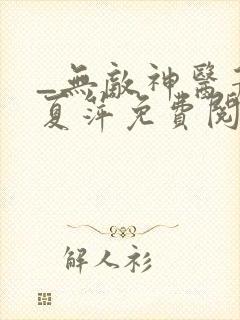 _無敵神醫
夏萍免費閱
解人衫